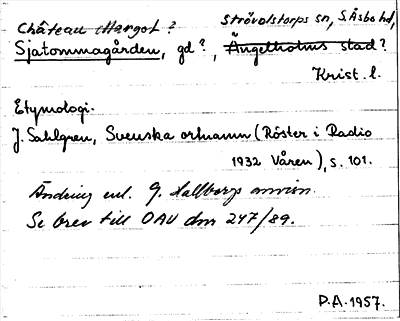 Château Margot? Strövelstorps sn, S.Åsbo hd,
Sjatommagården, gd?, Ängelholms stad?
Krist. l.
Etymologi.
J. Sahlgren, Svenska ortnamn (Röster i Radio
1932 Våren), s. 101.
Ändring enl. G. Hallbergs anvisn.
Se brev till OAU dnr 247/89.
P.A. 1957.